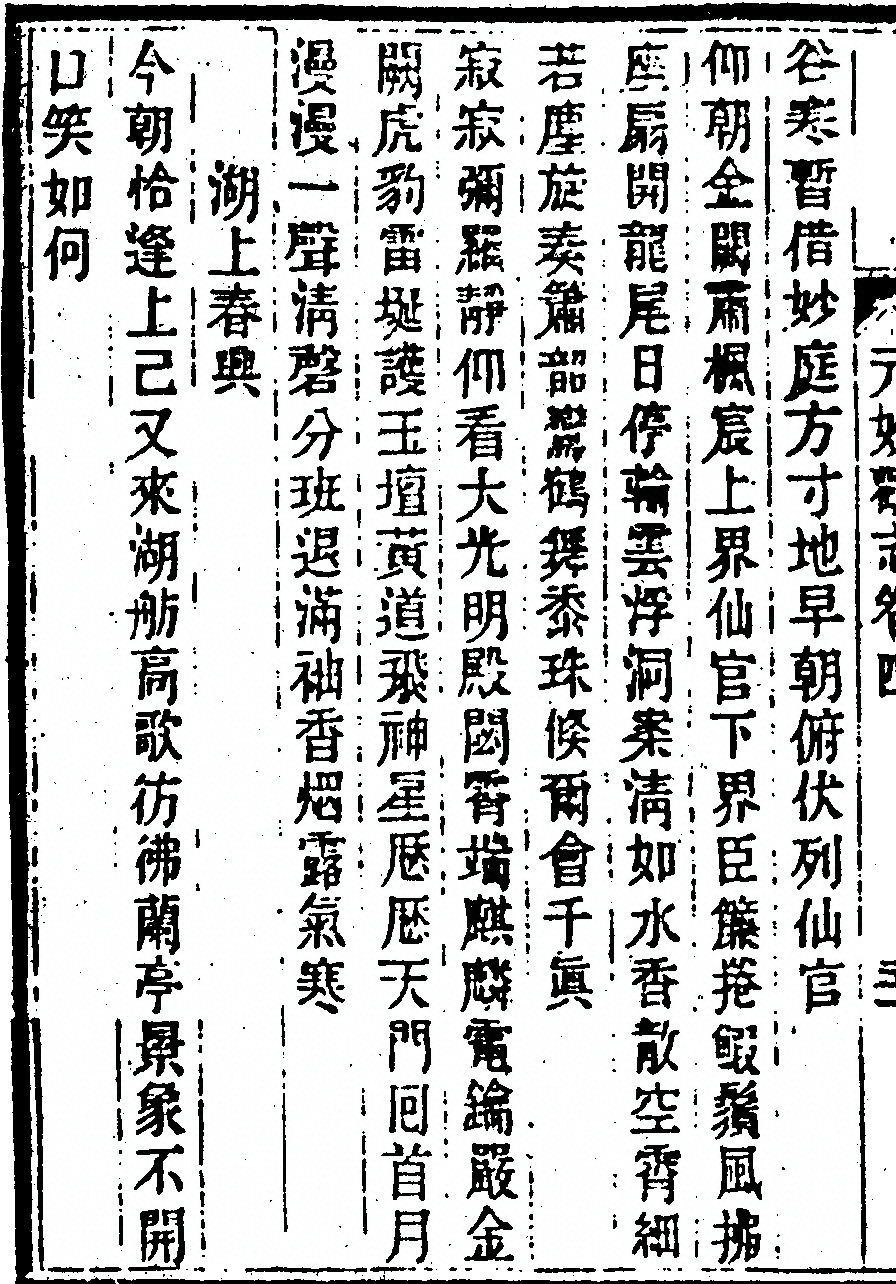 元妙觀志卷四
谷寒暫借妙庭方寸地早朝俯伏列仙官
仰朝金闕肅楓宸上界仙官下界臣簾捲鰕鬚風拂
座扇開龍尾日停輪雲浮洞案清如水香散空霄細
若塵旋奏簫韶鸞鶴舞黍珠倏爾會千眞
寂寂彌羅靜仰看大光明殿閟霄端麒麟電鑰嚴金
闕虎豹雷埏護玉壇黃道飛神星歷歷天門回首月
漫漫一聲淸磬分班退滿袖香烟露氣寒
湖上春興
今朝恰逢上已又來湖舫高歌彷彿蘭亭景象不開
口笑如何